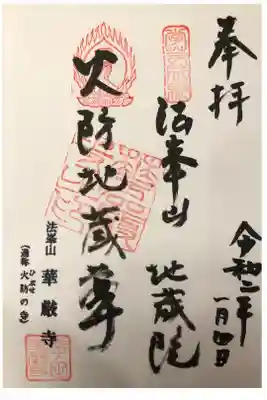 奉拝
令和二年
一月四日
法峯山 地蔵院
火防地蔵尊
法峯山 華厳寺
(通称 火防の寺)
ひぶせ